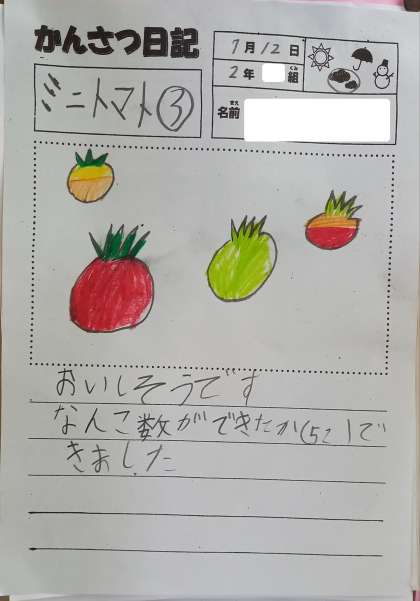 かんさつ日記
7月12日
2年 組
くみ
ミニトマト③
名前
なまえ
おいしそうです
なんこ数ができたか(52)で
きました